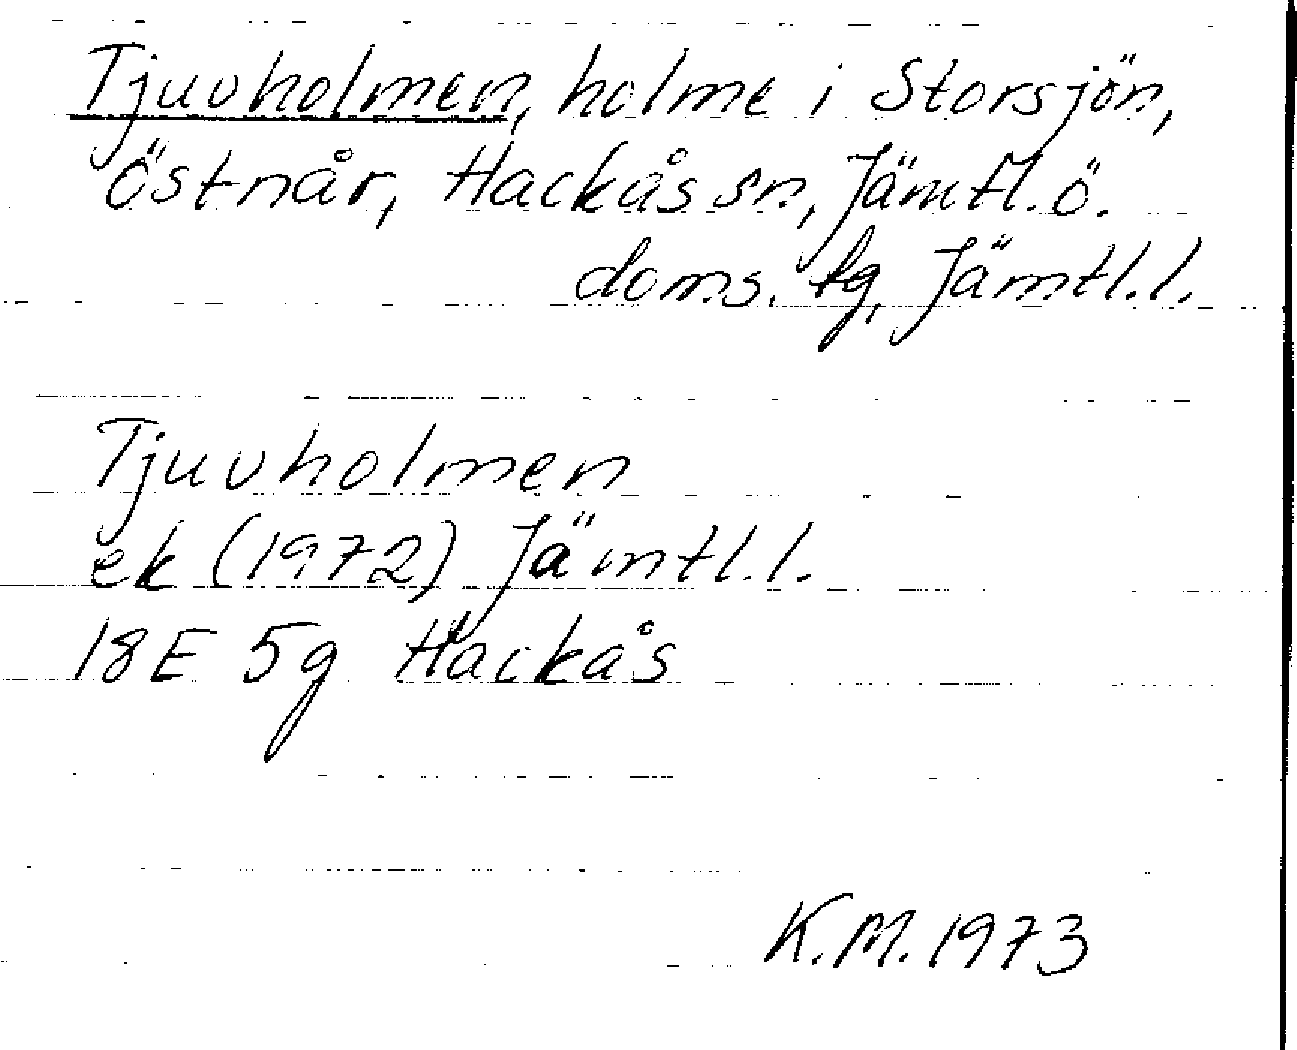 Tjuvholmen, holme i Storsjön,
Östnår, Hackås sn, Jämtl. ö.
doms. fg, Jämtl. l.
Tjuvholmen
ek (1972) Jämtl. l.
18E 5g Hackås
K.M. 1973